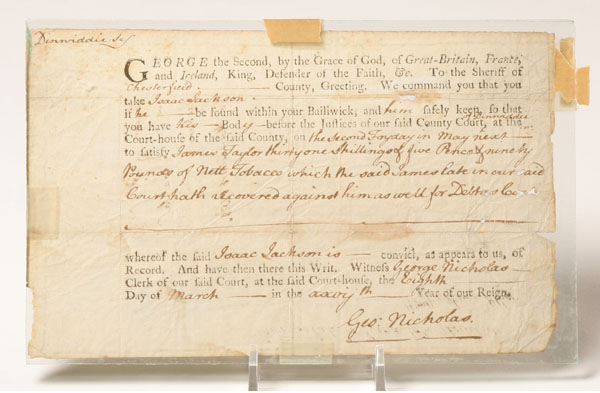 Dinwiddie Ss
GEORGE the Second, by the Grace of God, of Great-Britain, France,
and Ireland, King, Defender of the Faith, &c. To the Sheriff of
Chesterfield County, Greeting. We command you that you
take Isaac Jackson
if he be found within your Bailiwick; and him safely keep, so that
you have his Body before the Justices of our said County Court, at the
of Dinwiddie
Court-house of the said County, on the Second Fryday in May next
to satisfy James Taylor thirty one Shillings & five Pence & ninety
Pounds of Nett Tobacco which the said James late in our said
Court hath recovered against him as well for Debt as
whereof the said Isaac Jackson is convict, as appears to us, of
Record. And have then there this Writ. Witness George Nicholas
Clerk of our said Court, at the said Court-house, the Eighth
Day of March in the xxvijth Year of our Reign.
Geo: Nicholas.